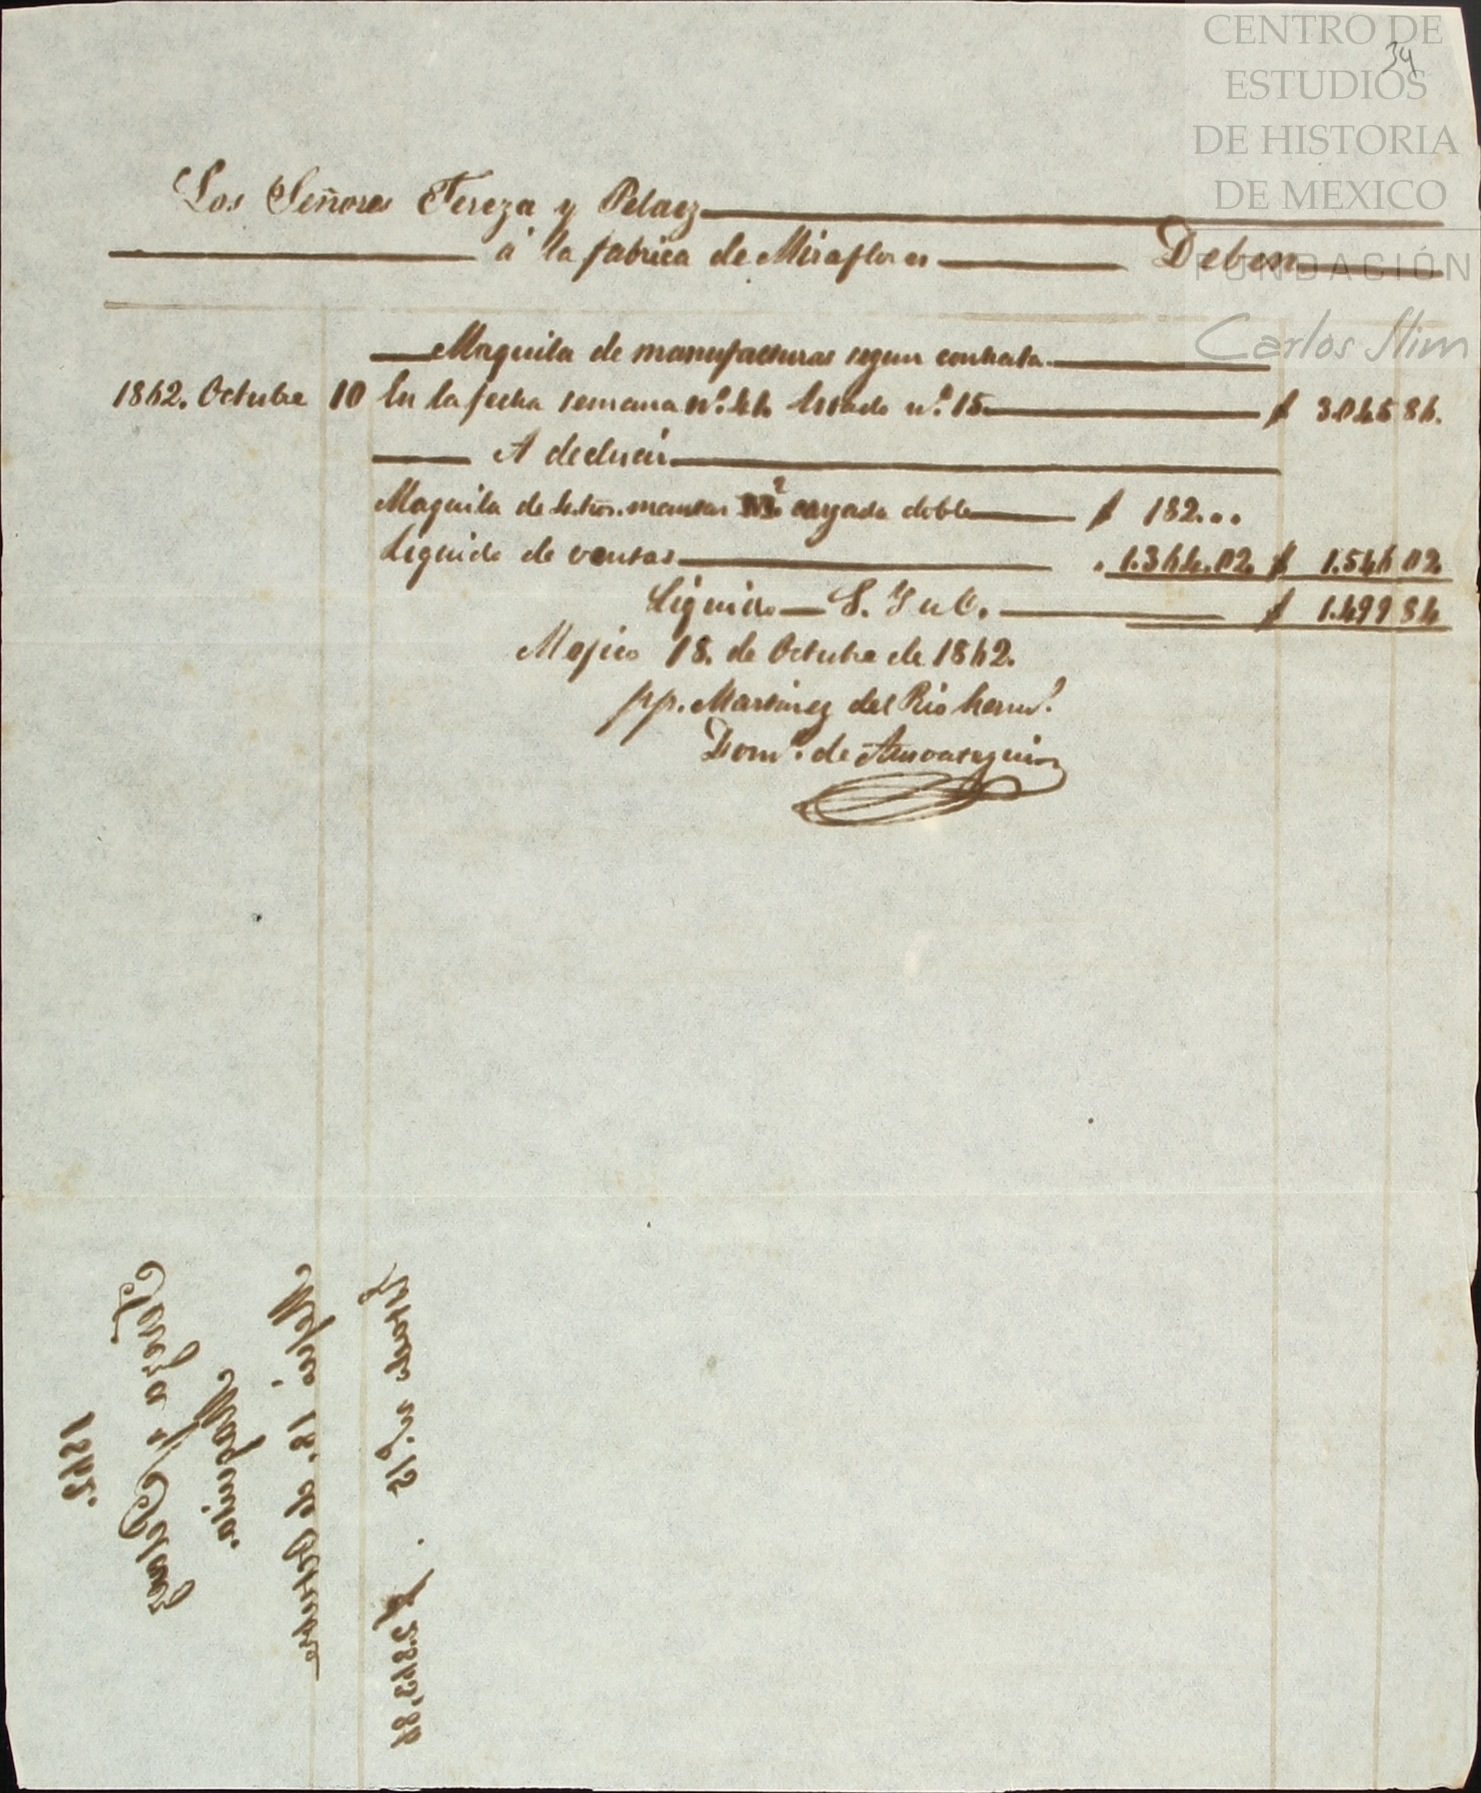 CENTRO DE
ESTUDIOS
DE HISTORIA
DE MEXICO
FUNDACIÓN
Carlos Slim
34
Los Señores Tereza y Pelaez
á la fabrica de Miraflores Deben
Maquila de manufacturas segun contrata.
1862. Octubre 10 En la fecha semana nº. 41. Estado nº. 15 $ 3.045 86.
A deducir
Maquila de mantas rayada doble $ 182...
Liquido de ventas . 1.364.02 $ 1.546 02
Liquido S. Y u O. $ 1.499 84
Mejico 18. de Octubre de 1862.
pp. Martinez del Rio herms.
Domº. de Ansoategui
1862.
Tereza y Pelaez
Maquila.
Mejico 18. de Octubre
Estado nº. 15 . $ 2.863,84